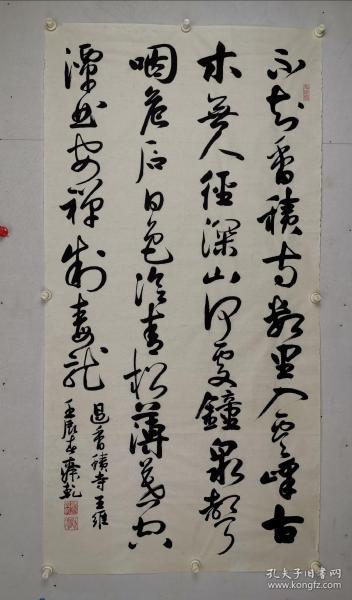 不知香積寺數里入雲峰古
木無人徑深山何處鐘泉聲
咽危石日色冷青松薄暮空
潭曲安禪制毒龍
過香積寺王維
壬辰
孔夫子旧书网